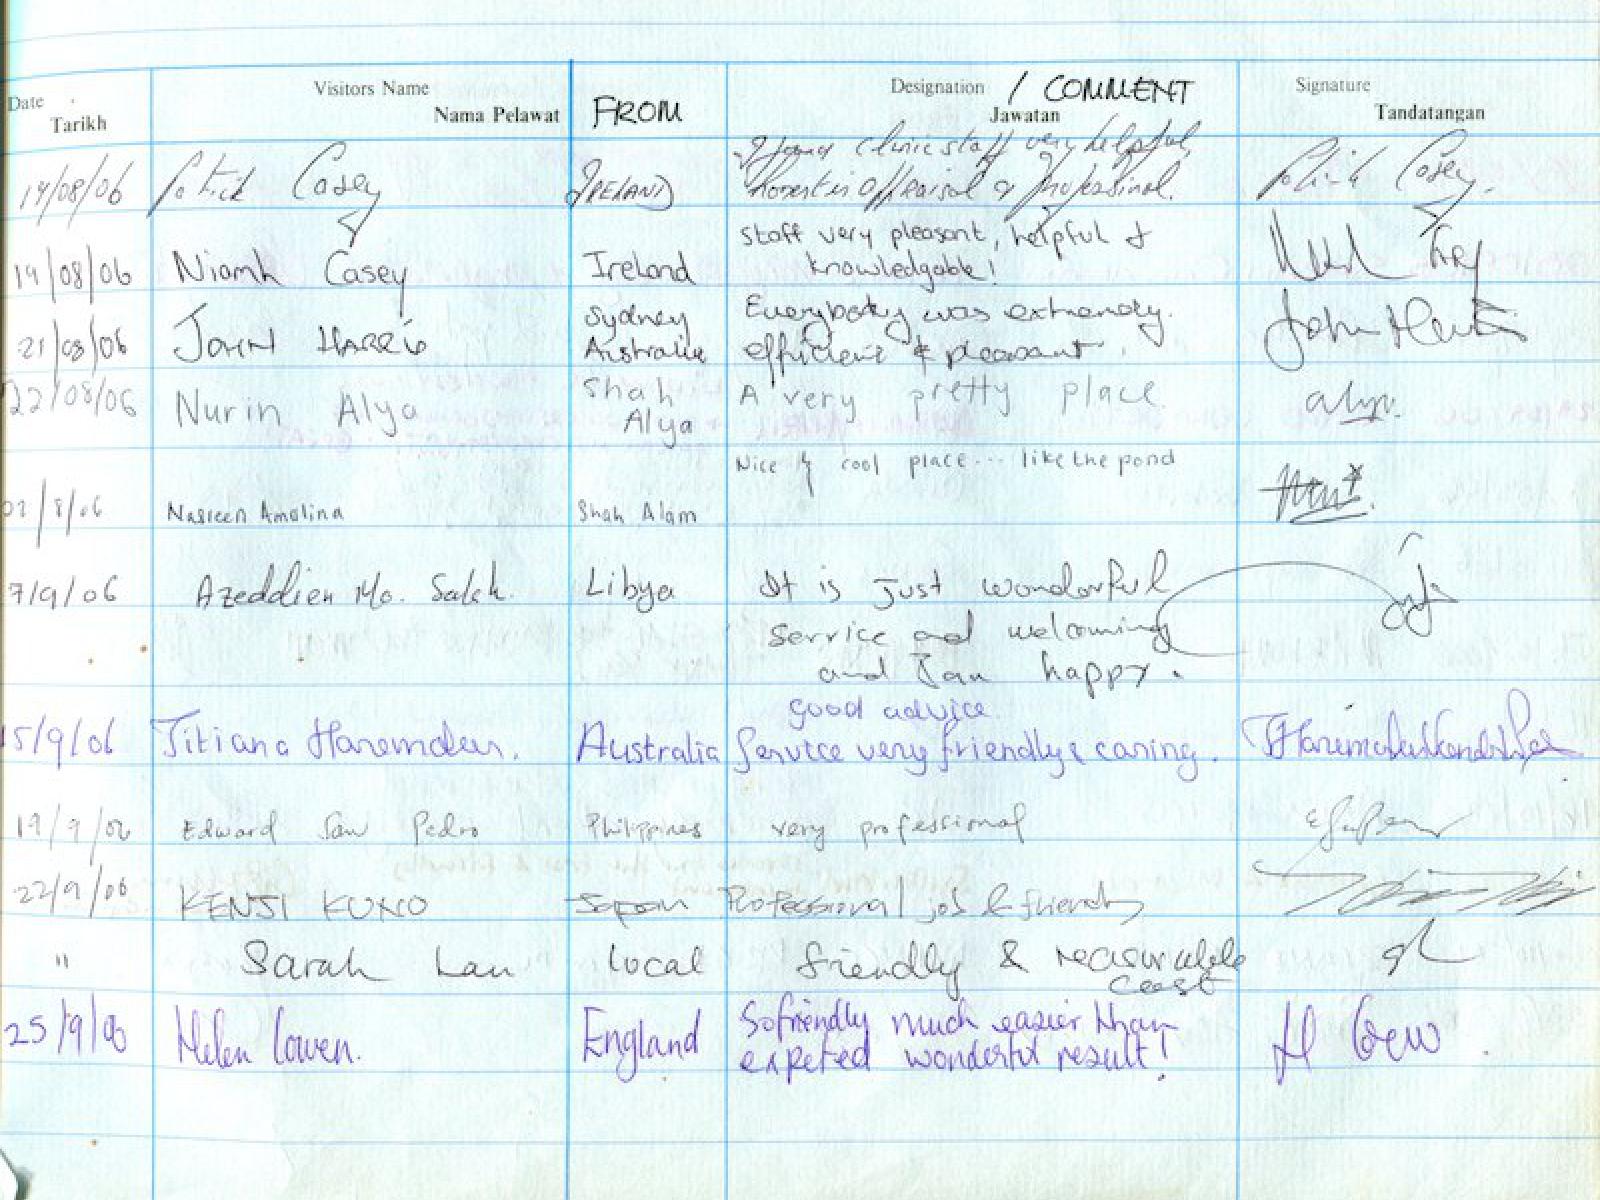 Date Visitors Name Designation / COMMENT Signature
Tarikh Nama Pelawat FROM Jawatan Tandatangan
I found Clinic staff very helpful,
19/08/06 Patrick Casey IRELAND honest in appraisal & professional. Patrick Casey.
Staff very pleasant, helpful &
19/08/06 Niamh Casey Ireland knowledgable!
Sydney Everybody was extremely.
21/08/06 JOHN HARRIS Australia efficient & pleasant. John Harris
22/08/06 Nurin Alya Shah A very pretty place. alya.
Alya
Nice & cool place... like the pond
/8/06 Nasreen Amalina Shah Alam
7/9/06 Azeddien Mo. Saleh. Libya It is just wonderful
service and welcoming
and I am happy.
good advice
15/9/06 Titiana Australia Service very friendly & caring.
19/9/06 Edward San Pedro Philippines very professional
22/9/06 KENJI KUNO Japan Professional job & friendly
" Sarah Lau local friendly & reasonable
cost
25/9/06 Helen Cowen. England So friendly much easier than
expeted wonderful result!